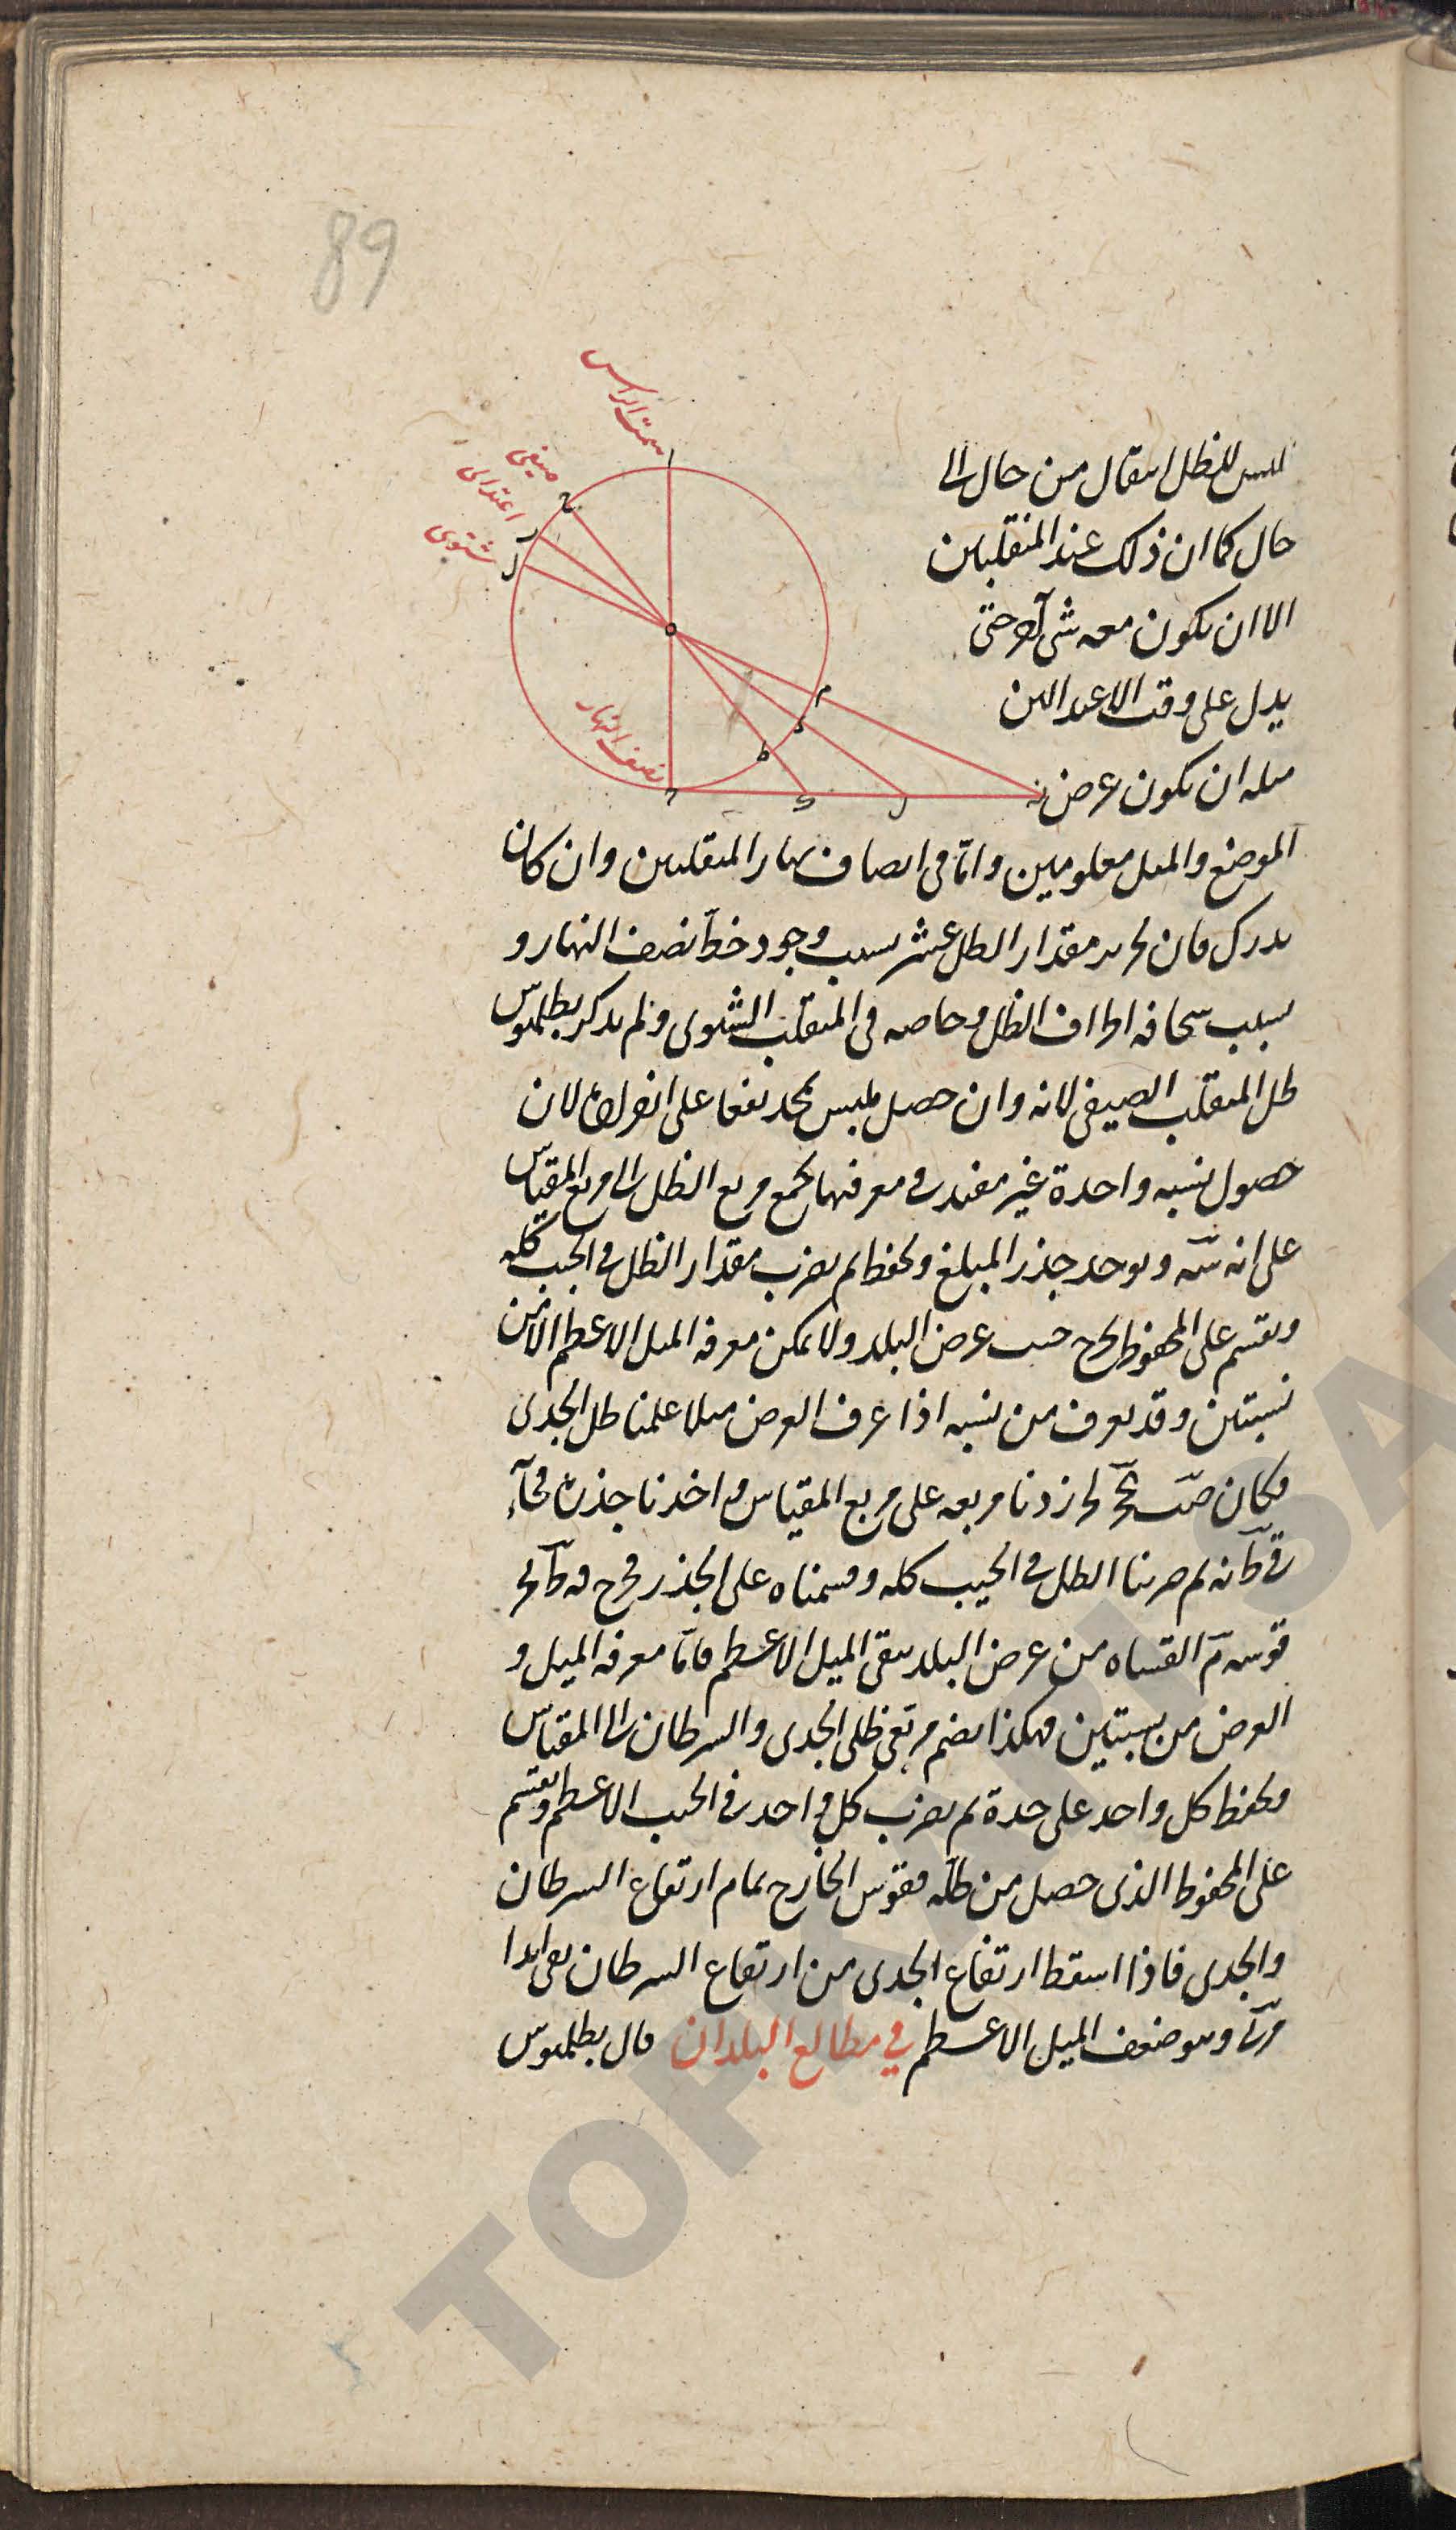 89
سمت الراس
صيفى
اعتدالى
شتوى
نصف النهار
ليس للظل انتقال من حال الى
حال كما ان ذلك عند المنقلبين
الا ان يكون معه شى آخر حتى
يدل على وقت الاعتدالين
مثله ان يكون عرض
الموضع والميل معلومين واما فى انصاف نهار المنقلبين وان كان
يدرك فان تحديد مقدار الظل عسر بسبب وجود خط نصف النهار و
بسبب سخافة اطراف الظل وخاصه فى المنقلب الشتوى ولم يذكر بطلميوس
ظل المنقلب الصيفى لانه وان حصل فليس يجد نفعا على انفراده لان
حصول نسبه واحدة غير مفيد فى معرفتها يجمع مربع الظل الى مربع المقياس
على انه ويوخد جذر المبلغ ويحفظ ثم يضرب مقدار الظل فى الجيب كله
ويقسم على المحفوظ يخرج جيب عرض البلد ولا يمكن معرفه الميل الاعظم الا من
نسبتين وقد يعرف من نسبه اذا عرف العرض مثلا علمنا ظل الجدى
فكان زدنا مربعه على مربع المقياس واخذنا جذره فجآء
ثم ضربنا الظل فى الجيب كله وقسمناه على الجذر فخرج
قوسه القيناه من عرض البلد بقى الميل الاعظم فاما معرفه الميل و
العرض من نسبتين فهكذا يضم مربعى ظلى الجدى والسرطان الى المقياس
ويحفظ كل واحد على حدة ثم يضرب كل واحد فى الجيب الاعظم ويقسم
على المحفوظ الذى حصل من ظله فقوس الخارج تمام ارتفاع السرطان
والجدى فاذا اسقط ارتفاع الجدى من ارتفاع السرطان بقى ابدا
وهو ضعف الميل الاعظم في مطالع البلدان قال بطلميوس
TOPKAPI SA